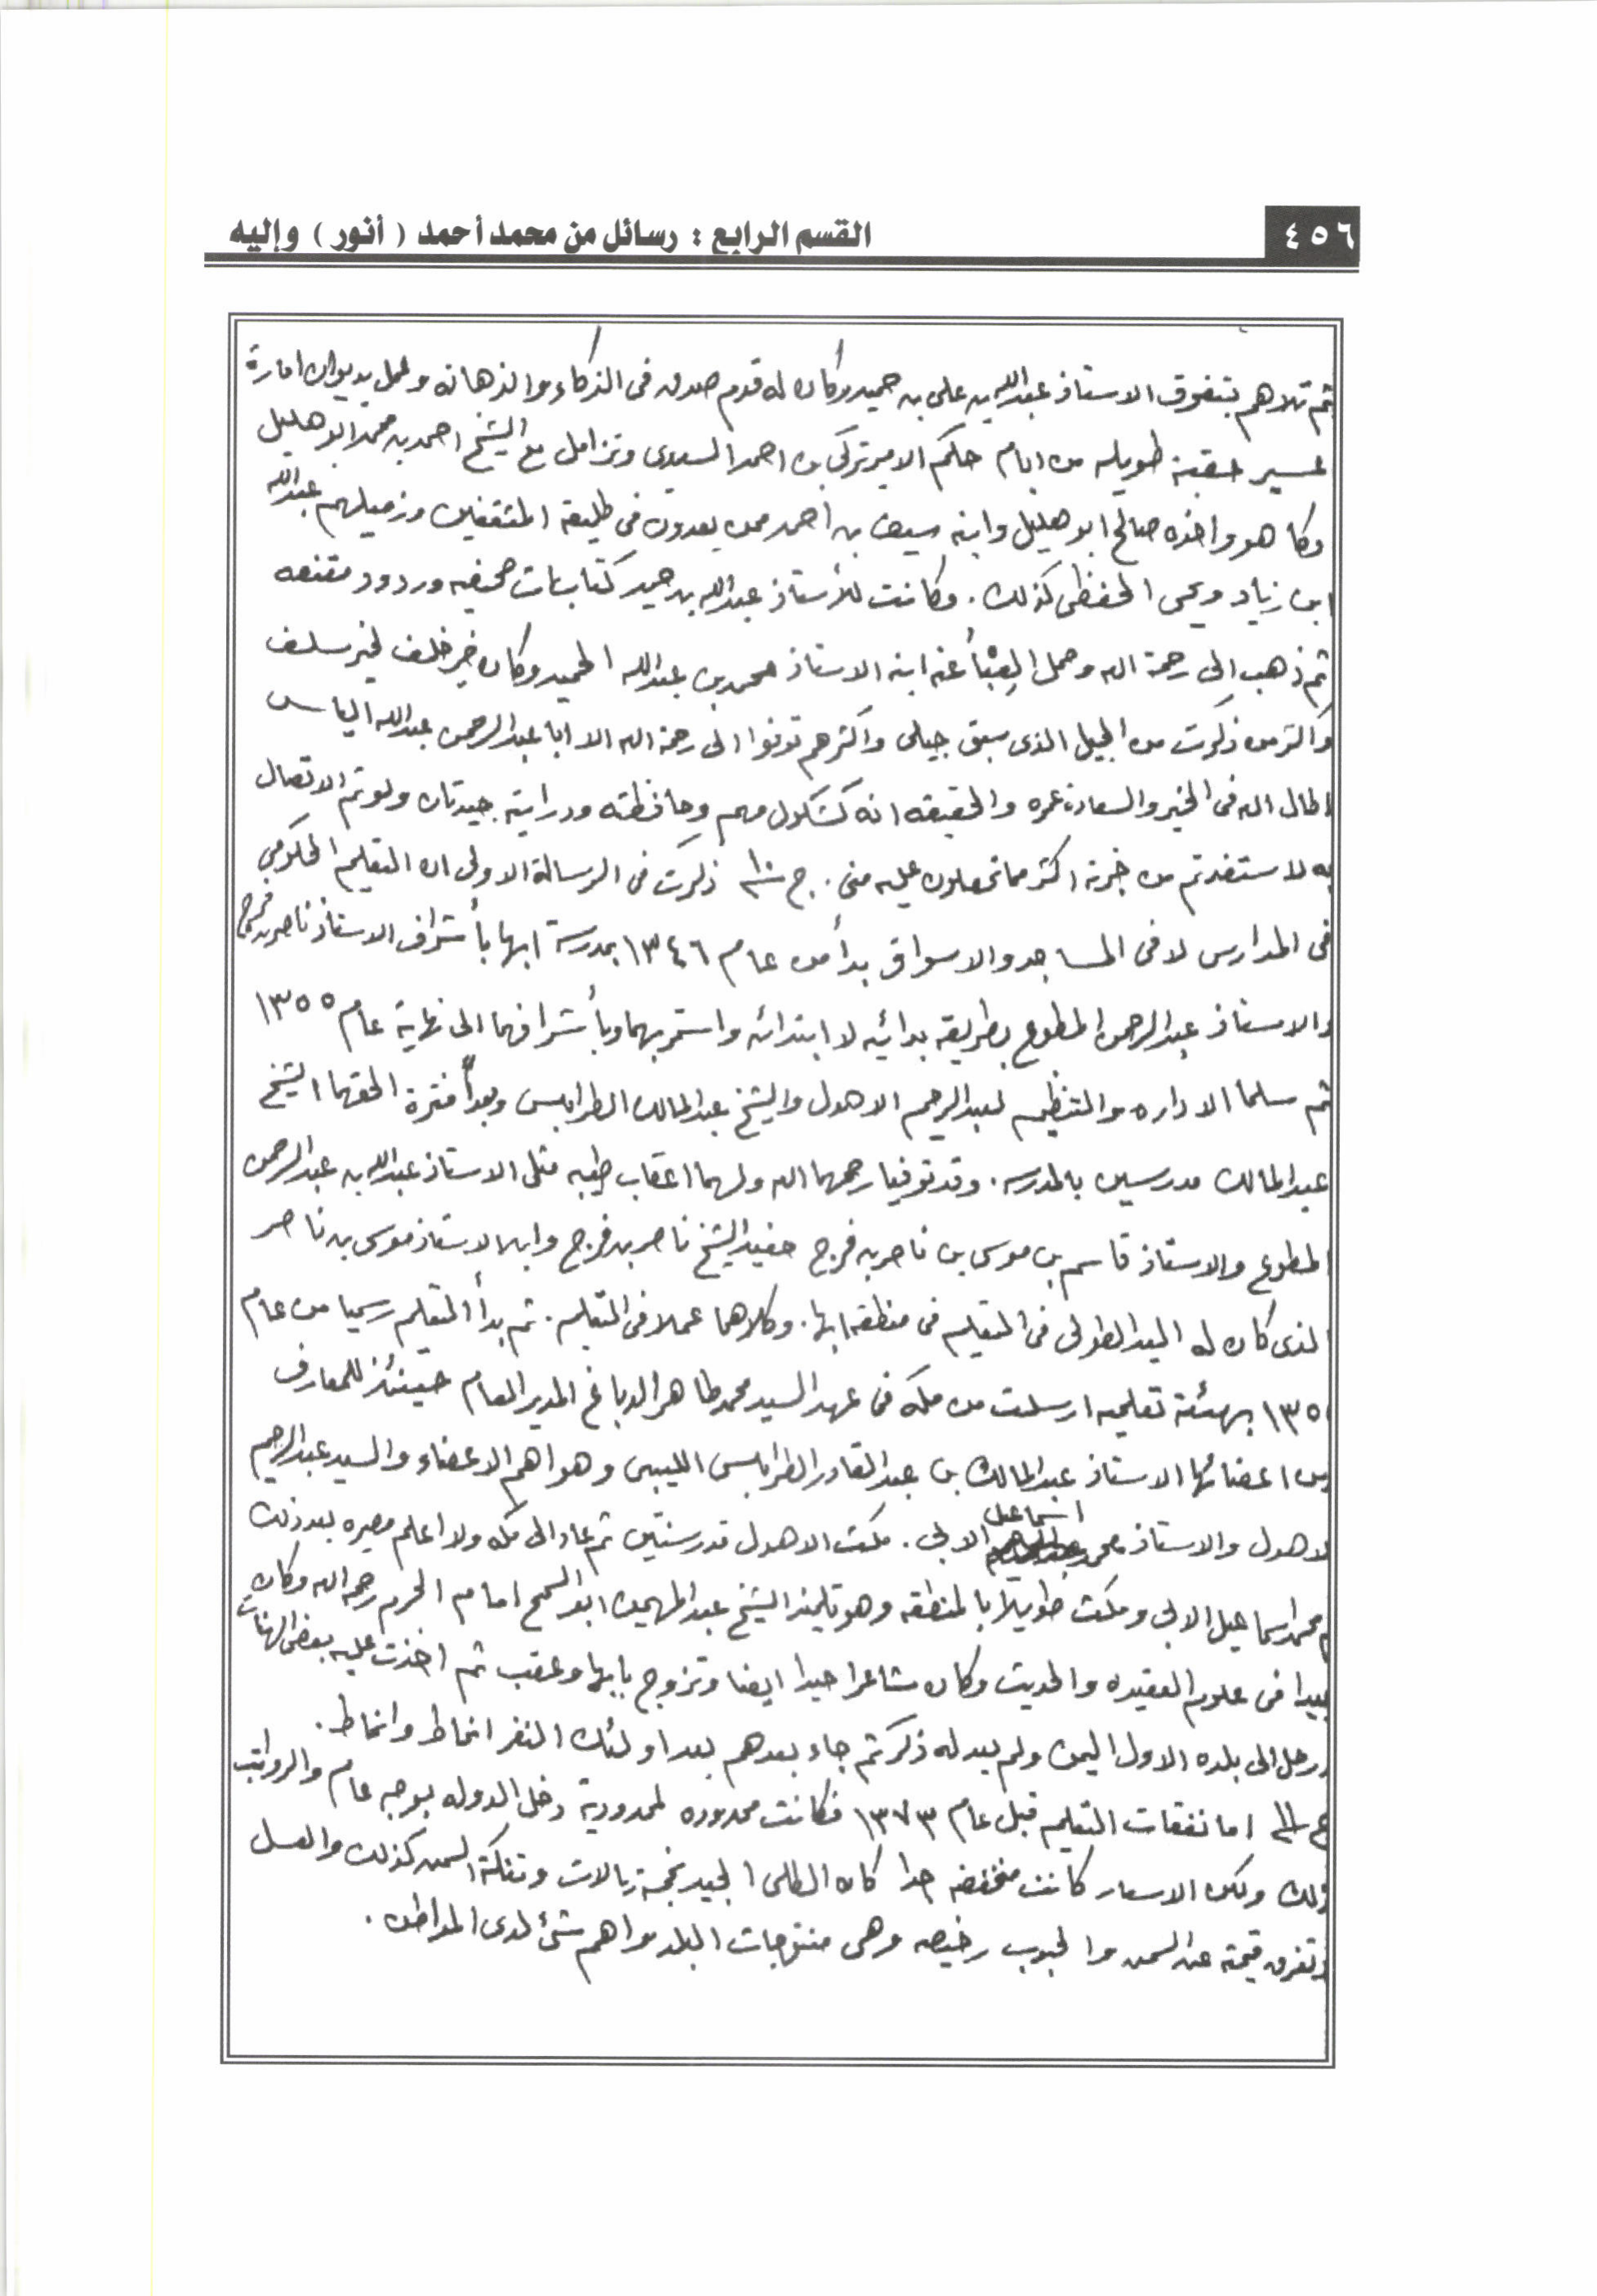 ٤٥٦
القسم الرابع : رسائل من محمد أحمد ( أنور ) وإليه
ثم تلاهم بتفوق الاستاذ عبدالله بن علي بن حميد وكان له قدم صدق في الذكاء والذهانه وعمل بديوان امارة
عسير حقبة طويله من ايام حكم الامير تركي بن احمد السديري وتزامل مع الشيخ احمد بن محمد ابو هليل
وكا هو واخوه صالح ابو هليل وابنه سيف بن احمد ممن يعدون في طليعة المثقفين وزميلهم عبدالله
ابن زياد ويحي الحفظي كذلك . وكانت للأستاذ عبدالله بن حميد كتابات صحفيه وردود مقنعه
ثم ذهب إلى رحمة الله وحمل العبأ عنه ابنه الاستاذ محمد بن عبدالله الحميد وكان خير خلف لخير سلف
واكثر من ذكرت من الجيل الذي سبق جيلي واكثرهم توفوا الى رحمة الله الا ابا عبدالرحمن عبدالله الياس
اطال الله في الخير والسعادة عمره والحقيقه انه كشكول مهم وحافظته ودرايته جيدتان ولو تم الاتصال
به لاستفدتم من خبرته اكثر مما تحصلون عليه مني . ج ١٠ ذكرت في الرسالة الاولى ان التعليم الحكومي
في المدارس لا في المساجد والاسواق بدأ من عام ١٣٤٦ بمدرسة ابها بأشراف الاستاذ ناصر بن فرج
والاستاذ عبدالرحمن المطوع بطريقه بدائيه لا ابتدائه واستمر بهما وبأشرافهما الى نهاية عام ١٣٥٥
ثم سلما الاداره والتنظيم لعبدالرحيم الاهدل والشيخ عبدالمالك الطرابلسي وبعد فترة الحقهما الشيخ
عبدالمالك مدرسين بالمدرسه . وقد توفيا رحمهما الله ولهما اعقاب طيبه مثل الاستاذ عبدالله بن عبدالرحمن
المطوع والاستاذ قاسم بن موسى بن ناصر بن فرج حفيد الشيخ ناصر بن فرج وابن الاستاذ موسى بن ناصر
الذي كان له اليد الطولى في التعليم في منطقة ابها . وكلاهما عملا في التعليم . ثم بدأ التعليم رسميا من عام
١٣٥ بهيئة تعليميه ارسلت من مكه في عهد السيد محمد طاهر الدباغ المدير العام حينئذ للمعارف
من اعضائها الاستاذ عبدالمالك بن عبدالقادر الطرابلسي الليبي وهو اهم الاعضاء والسيد عبدالرحيم
لاهدل والاستاذ محمد اسماعيل الابي . مكث الاهدل قدر سنتين ثم عاد الى مكه ولا اعلم مصيره بعد ذلك
م محمد اسماعيل الابي ومكث طويلا بالمنطقه وهو تلميذ الشيخ عبدالمهيمن ابو السمح امام الحرم رحمه الله وكان
جيدا في علوم العقيده والحديث وكان شاعرا جيدا ايضا وتزوج بابها وعقب ثم اخذت عليه بعض الهنات
ورحل الى بلده الاول اليمن ولم يعد له ذكر ثم جاء بعدهم بعد اولئك النفر انماط وانماط .
ج ١١ اما نفقات التعليم قبل عام ١٣٧٣ فكانت محدوده لمحدودية دخل الدوله بوجه عام والرواتب
ذلك ولكن الاسعار كانت منخفضه جدا كان الطلي الجيد بخمسة ريالات وتنكة السمن كذلك والعسل
وتفرق قيمته عن السمن والحبوب رخيصه وهي منتوجات البلد واهم شئ لدى المواطن .